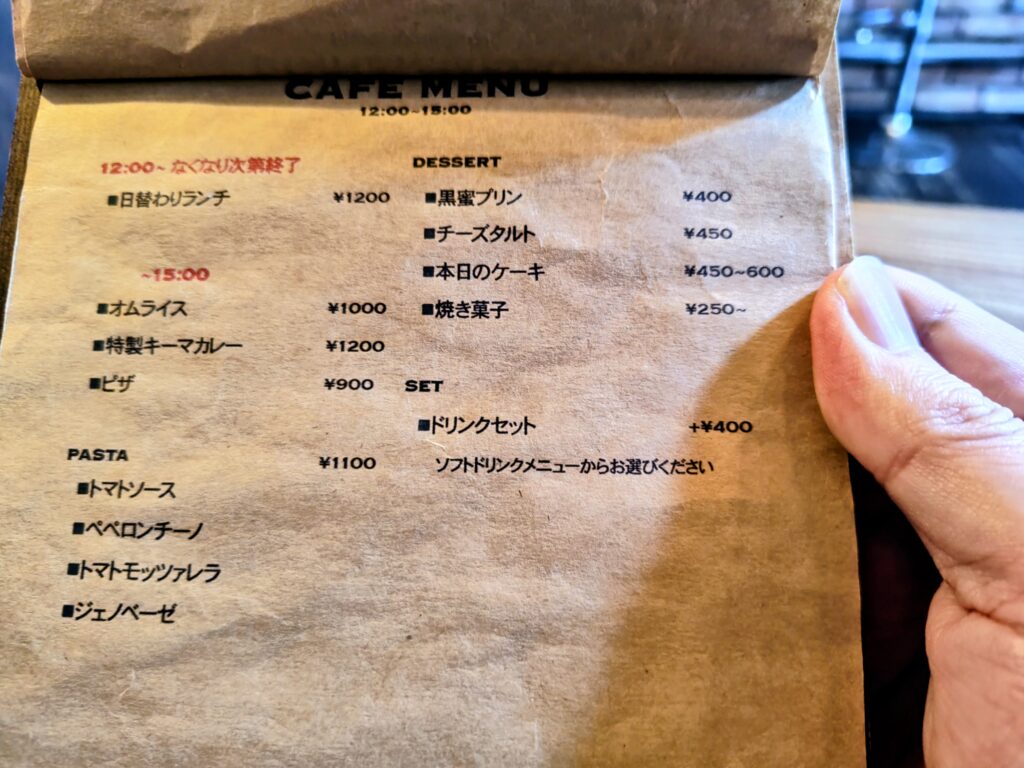 CAFE MENU
12:00~15:00
12:00~ なくなり次第終了
■日替わりランチ ¥1200
~15:00
■オムライス ¥1000
■特製キーマカレー ¥1200
■ピザ ¥900
PASTA ¥1100
■トマトソース
■ペペロンチーノ
■トマトモッツァレラ
■ジェノベーゼ
DESSERT
■黒蜜プリン ¥400
■チーズタルト ¥450
■本日のケーキ ¥450~600
■焼き菓子 ¥250~
SET
■ドリンクセット +¥400
ソフトドリンクメニューからお選びください